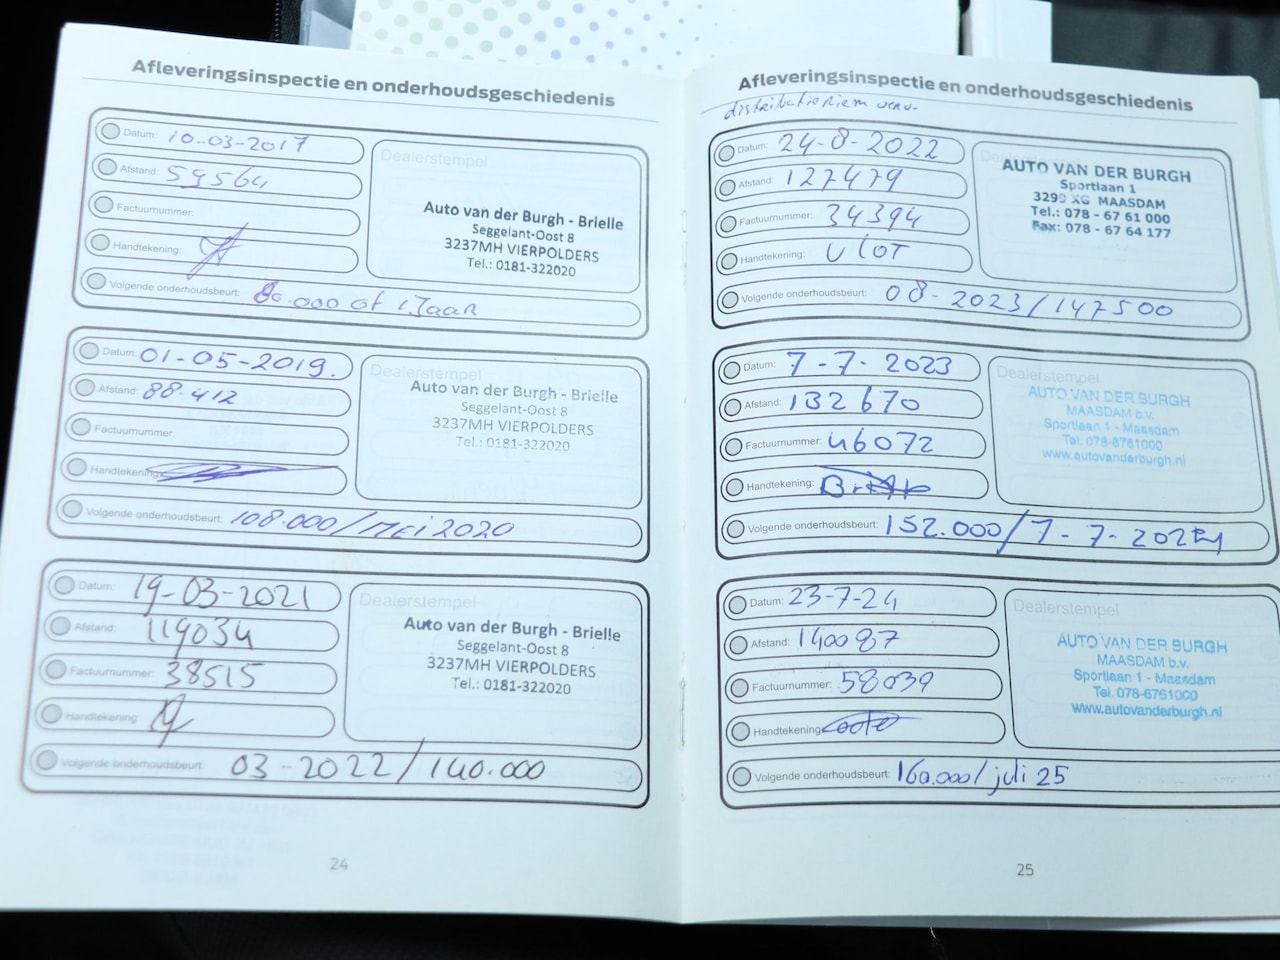 Afleveringsinspectie en onderhoudsgeschiedenis
Datum: 10-03-2017
Afstand: 59564
Factuurnummer:
Handtekening:
Volgende onderhoudsbeurt: 80.000 of 1 Jaar
Dealerstempel
Auto van der Burgh - Brielle
Seggelant-Oost 8
3237MH VIERPOLDERS
Tel.: 0181-322020
Datum: 01-05-2019.
Afstand: 88.412
Factuurnummer:
Handtekening:
Volgende onderhoudsbeurt: 108.000/MEi 2020
Dealerstempel
Auto van der Burgh - Brielle
Seggelant-Oost 8
3237MH VIERPOLDERS
Tel.: 0181-322020
Datum: 19-03-2021
Afstand: 119034
Factuurnummer: 38515
Handtekening:
Volgende onderhoudsbeurt: 03-2022/140.000
Dealerstempel
Auto van der Burgh - Brielle
Seggelant-Oost 8
3237MH VIERPOLDERS
Tel.: 0181-322020
24
Afleveringsinspectie en onderhoudsgeschiedenis
distributieriem verv.
Datum: 24-8-2022
Afstand: 127479
Factuurnummer: 34394
Handtekening: Vlot
Volgende onderhoudsbeurt: 08-2023/147500
AUTO VAN DER BURGH
Sportlaan 1
3299 XG MAASDAM
Tel.: 078 - 67 61 000
Fax: 078 - 67 64 177
Datum: 7-7-2023
Afstand: 132670
Factuurnummer: 46072
Handtekening:
Volgende onderhoudsbeurt: 152.000/7-7-2024
Dealerstempel
AUTO VAN DER BURGH
MAASDAM b.v.
Sportlaan 1 - Maasdam
Tel. 078-6761000
www.autovanderburgh.nl
Datum: 23-7-24
Afstand: 140087
Factuurnummer: 58039
Handtekening:
Volgende onderhoudsbeurt: 160.000/juli 25
Dealerstempel
AUTO VAN DER BURGH
MAASDAM b.v.
Sportlaan 1 - Maasdam
Tel. 078-6761000
www.autovanderburgh.nl
25